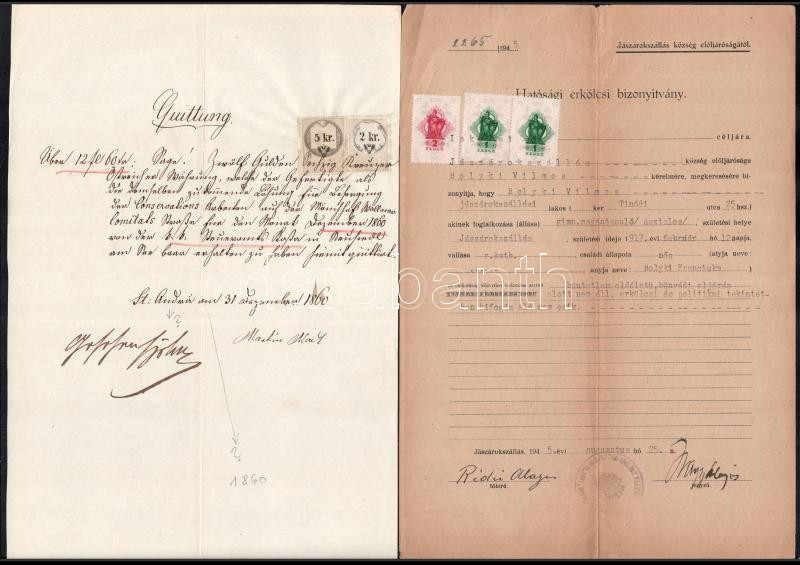 Quittung
5 kr.
2 kr.
Über 12 fl 60 kr: Sage! Zwölf Gulden Sechzig Kreuzer
Österreicher Währung, welche der Gefertigte als
die demselben zukommende Lohnung für Besorgung
der Conservations Arbeiten auf der
Comitats Straße für den Monat Dezember 1860
von der k.k. Steueramts Kassa in Neusiedl
am See baar erhalten zu haben hiemit quittirt.
St. Andrä am 31 Dezember 1860
Martin
?
?
1860
2265 /194 5
Jászárokszállás község elöljáróságától.
Hatósági erkölcsi bizonyitvány.
2
1
1
céljára.
Jászárokszállás község elöljárósága
Bolyki Vilmos kérelmére, megkeresésére bi-
zonyitja, hogy Bolyki Vilmos
jászárokszállási lakos ( ker. Tinódi utca 25 hsz.)
akinek foglalkozása (állása) gimn.magántanuló/ asztalos/, születési helye
Jászárokszállás születési ideje 1917, évi február hó 12 napja.
vallása r.kath. családi állapota nős (atyja neve:
anyja neve: Bolyki Franciska )
büntetlen előéletü, bünvádi eljárás
alatt nem áll, erkölcsi és politikai tekintet-
ben kifogás alá nem esik.
Jászárokszállás, 194 5. évi augusztus hó 25. n.
főbíró.
jegyző.